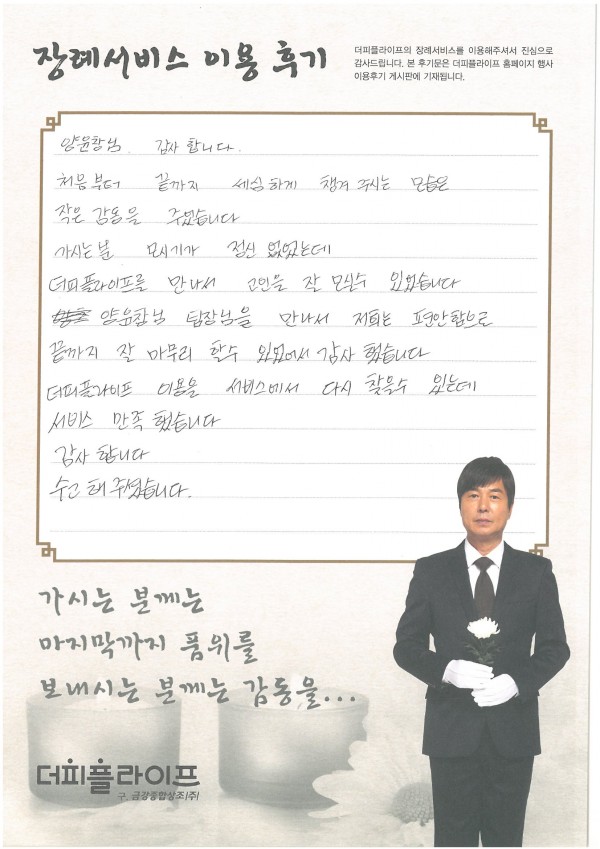 장례서비스 이용 후기
더피플라이프의 장례서비스를 이용해주셔서 진심으로
감사드립니다. 본 후기문은 더피플라이프 홈페이지 행사
이용후기 게시판에 기재됩니다.
양윤창님. 감사 합니다.
처음부터 끝까지 세심하게 챙겨 주시는 모습은
작은 감동을 주었습니다
가시는분 모시기가 정신 없었는데
더피플라이프를 만나서 고인을 잘 모실수 있었습니다
양윤창님 팀장님을 만나서 저희는 편안함으로
끝까지 잘 마무리 할수 있었어서 감사 했습니다
더피플라이프 이용을 서비스에서 다시 찾을수 있는데
서비스 만족 했습니다
감사 합니다
수고 해 주셨습니다.
가시는 분께는
마지막까지 품위를
보내시는 분께는 감동을...
더피플라이프
구. 금강종합상조(주)